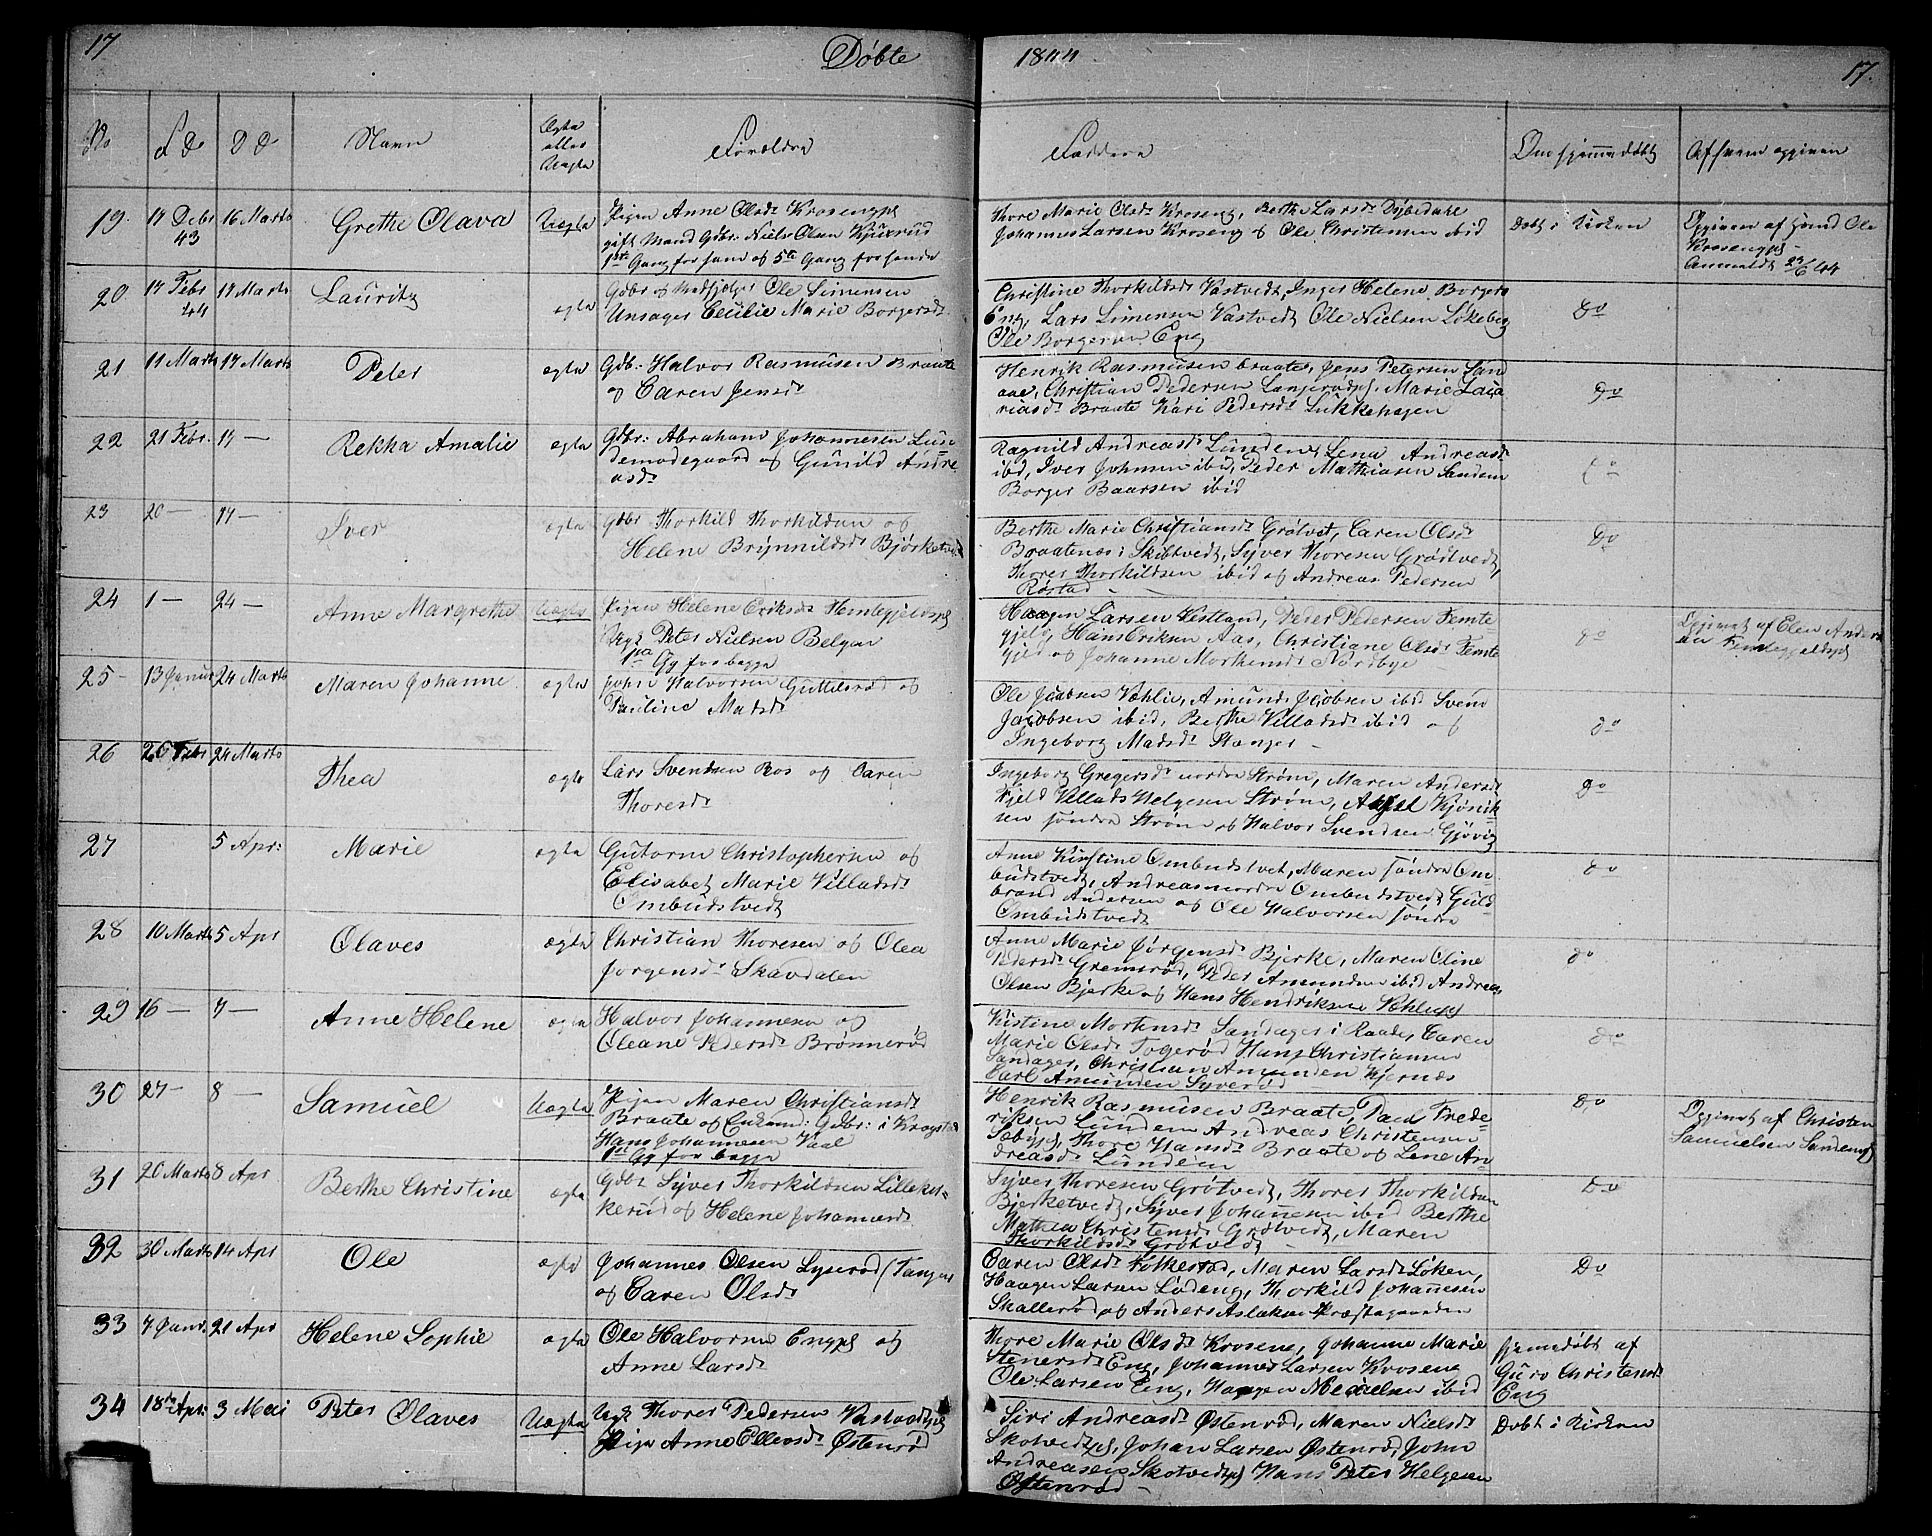 17 Døbte 1844 17.
No F D D D Navn Ægte eller Uægte Forældre Faddere Om hjemmedøbt Af hvem opgiven
19. 14 Debr 43 16 Marts Grethe Olava Uægte Pigen Anne Olsdr Krosengpl
gift Mand Gdbr: Niels Olsen
1ste Gang for ham og 5te Gang for hende
Thore Marie Olsdr Kroseng, Berthe Larsdr Dybedahl
Johannes Larsen Kroseng og Ole Christensen ibid
Døbt i Kirken
Opgiven af Ole
Krosengpl
Anmeldt 29/6 44
20. 14 Febr 44 17 Marts Lauritz ægte Gdbr og Ole Simensen
Unsager Cecilie Marie Borgersdr
Christine Thorkildsdr Vastvedt, Inger Helene Borgers
Eng, Lars Simensen Vastvedt Ole Nielsen Løkeberg
Ole Borgersen Eng
Do
21 11 Marts 17 Marts Peter ægte Gdbr: Halvor Rasmusen Braate
og Caren Jensdr
Henrik Rasmusen braate, Jens Petersen San
aae, Christian Pedersen Langerødpl, Marie Laca
riasdr Braate Kari Pedersdr Lukkehagen
Do
22 21 Febr. 17 — Rekka Amalie ægte Gdbr: Abraham Johannesen Lun
demodegaard og Gunild Andre
asdr
Ragnild Andreasdr Lunden, Lena Andreasdr
ibid, Iver Johnsen ibid, Peder Mathiasen Sandem
Borger Baarsen ibid
Do
23 20 — 17 — Iver ægte Gdbr Thorkild Thorkildsen og
Helene Brynnildsdr Bjørketvedt
Berthe Marie Christiansdr Grøtvet, Caren Olsdr
Braatenæs i Skibtvedt, Syver Thoresen Grødtvedt,
Thores Thorkildsen ibid og Andreas Pedersen
Røstad —
Do
24 1 — 24 — Anne Margrethe Uægte Pigen Helene Eriksdr Hemtegjeldspl
Ugk Peter Nielsen Belgen
1ste Gg for begge
Haagen Larsen Vestland, Peder Pedersen Femte-
gjeld, Hans Eriksen Aas, Christiane Olsdr Femte
gjeld og Johanne Mortensdr Nordbye
do
Opgivet af Elen Anders
sen Femtegjeldspl
25 — 13 Januar 24 Marts Maren Johanne ægte John Halvorsen Guttesrød og
Pauline Madsdr
Ole Jacobsen Væhlie, Amund Jacobsen ibid Svend
Jacobsen ibid, Berthe Villadsdr ibid og
Ingeborg Madsdr Stanger —
do
26 26 Febr 24 Marts Thea ægte Lars Svendsen Ros og Caren
Thoresdr
Ingeborg Gregersdr nordre Strøm, Maren Andersdr
Fjeld Villads Helgesen Strøm,
sen søndre Strøm og Halvor Svendsen Gjøvig
do
27 5 Apr: Marie ægte Gutorm Christophersen og
Elisabet Marie Villadsdr
Ombudstvedt
Anne Kirstine Ombudstvet, Maren søndre Om-
budstvedt, Andreas nordre Ombudstvedt Guld-
brand Andersen og Ole Halvorsen søndre
Ombudstvedt
do
28 10 Marts 5 Apr Olaves ægte Christian Thoresen og Olea
Jørgensdr Skavdalen
Anne Marie Jørgensdr Bjerke, Maren Oline
Pedersdr Gremsrød, Peder Amundsen ibid Andreas
Olsen Bjerke og Hans Hendriksen Væhliepl
do
29 16 — 7 — Anne Helene ægte Halvor Johannesen og
Oleane Pedersdr Brønnerød
Kistine Mortensdr Sandager i Raade, Caren
Marie Olsdr Togerød Hans Christiansen
Sandager, Christian Amundsen Kjernæs
Carl Amundsen Syverød
do
30 27 — 8 — Samuel Uægte Pigen Maren Christiansdr
Braate og Enkem: Gdbr: i Kragstad
Hans Johannesen Vaal
1ste Gg for begge
Henrik Rasmusen Braate, Paul Frede-
riksen Lundem Andreas Christensen
Sæbypl, Thore Hansdr Braate og Lene An-
dreasdr Lundem
Do
Opgivet af Christen
Samuelsen Sandempl
31 20 Marts 8 Apr Berthe Christine ægte Gdbr Syver Thorkildsen Lilleket-
kerud og Helene Johannesdr
Syver Thoresen Grøtvedt, Thores Thorkildsen
Bjerketvedt, Syver Johannesen ibid Berthe
Mathea Christensdr Grøtvedt, Maren
Thorkildsdr Grøtvedt —
Do
32 30 Marts 14 Apr Ole ægte Johannes Olsen Lyserød (Tangen
og Caren Olsdr
Caren Olsdr Folkestad, Maren Larsdr Løken,
Haagen Larsen Lødeng, Thorkild Johannesen
Skallerød og Anders Aslaksen Præstegaarden
Do
33 7 Janr. 21 Apr Helene Sophie ægte Ole Halvorsen Engpl og
Anne Larsdr
Thore Marie Olsdr Krosene, Johanne Marie
Stenersdr Eng, Johannes Larsen Kroseng
Ole Larsen Eng, Haagen ibid
hjemedøbt af
Guro Christensdr
Eng
34 18de Apr: 3 Mai Peter Olaves Uægte Ugk Thores Pedersen Vastvedtpl
Pige Anne Ellevsdr Østenrød
Siri Andreasdr Østenrød, Maren Nielsdr
Skotvedtpl, Johan Larsen Østenrød, John
Andreasen Skotvedtpl Hans Peter Helgesen
Østenrød —
Døbt i Kirken